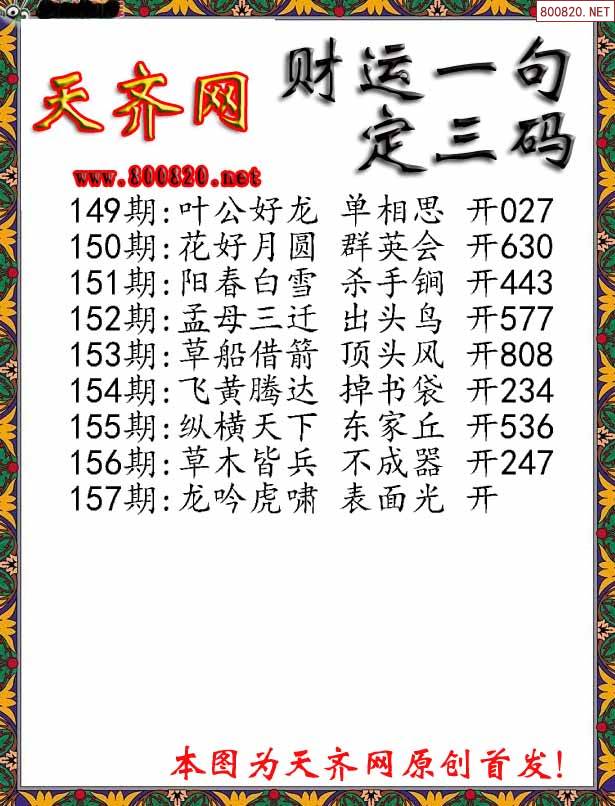 800820.NET
天齐网
财运一句
定三码
www.800820.net
149期:叶公好龙 单相思 开027
150期:花好月圆 群英会 开630
151期:阳春白雪 杀手锏 开443
152期:孟母三迁 出头鸟 开577
153期:草船借箭 顶头风 开808
154期:飞黄腾达 掉书袋 开234
155期:纵横天下 东家丘 开536
156期:草木皆兵 不成器 开247
157期:龙吟虎啸 表面光 开
本图为天齐网原创首发!